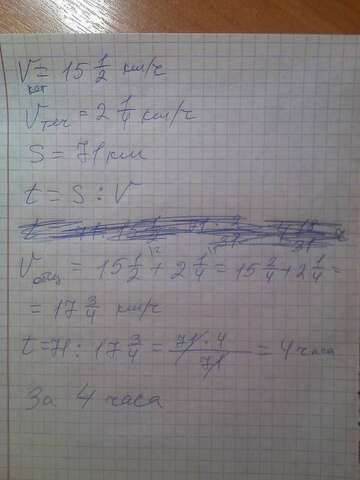 V кат = 15 1/2 км/ч
V теч = 2 1/4 км/ч
S = 71 км
t = S : V
V общ = 15 1/2 + 2 1/4 = 15 2/4 + 2 1/4 =
= 17 3/4 км/ч
t = 71 : 17 3/4 = 71 · 4 / 71 = 4 часа
За 4 часа